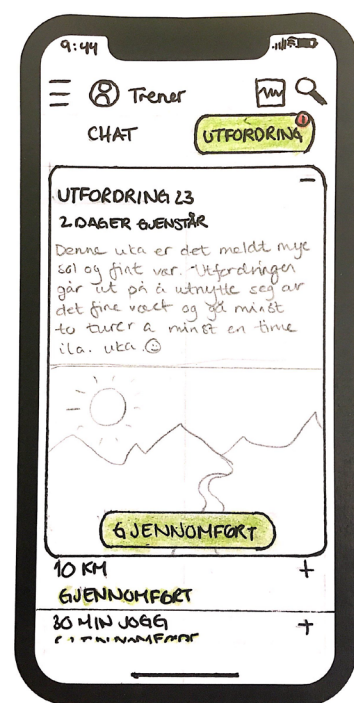 9:44
Trener
CHAT
UTFORDRING
!
UTFORDRING 23
2 DAGER GJENSTÅR
Denne uka er det meldt mye
sol og fint vær. Utfordringen
går ut på å utnytte seg av
det fine været og gå minst
to turer a minst en time
ila. uka. ☺
GJENNOMFØRT
10 KM
+
GJENNOMFØRT
30 MIN JOGG
+
GJENNOMFØRT